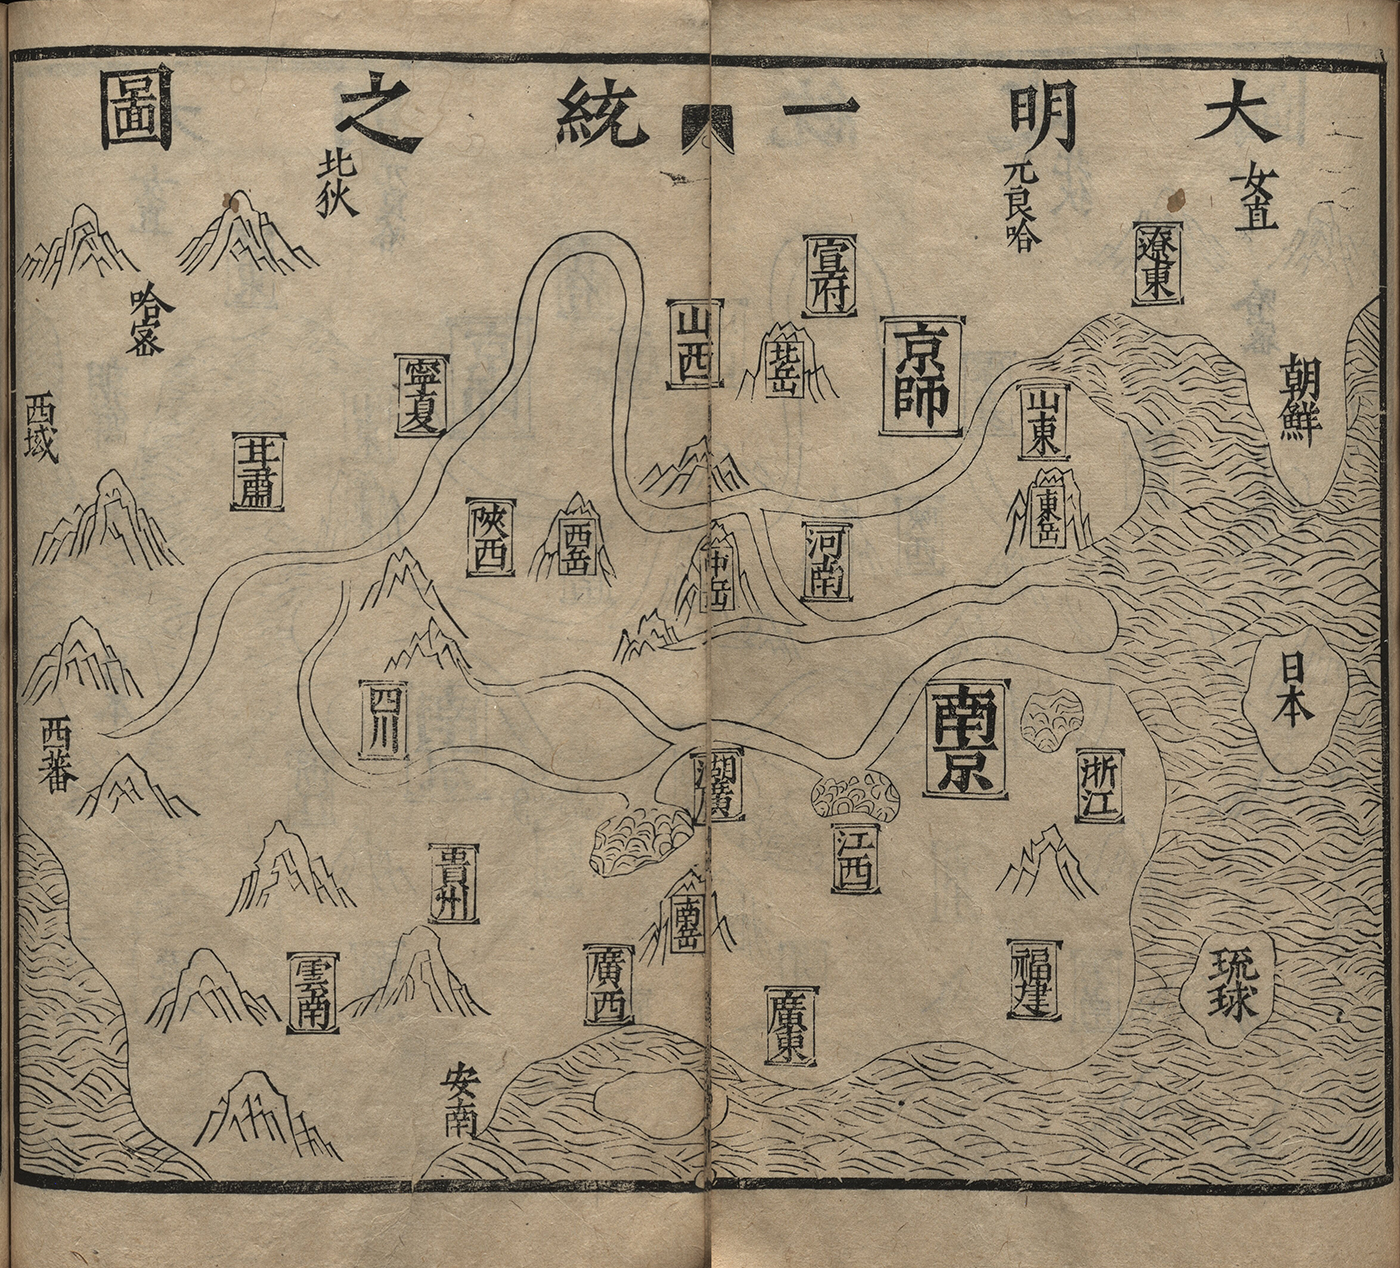 大明一統之圖
女直
元良哈
北狄
遼東
宣府
京師
山西
北岳
朝鮮
山東
東岳
寧夏
哈密
西域
甘肅
陝西
西岳
中岳
河南
日本
南京
浙江
四川
西蕃
湖廣
江西
貴州
南岳
福建
琉球
雲南
廣西
廣東
安南